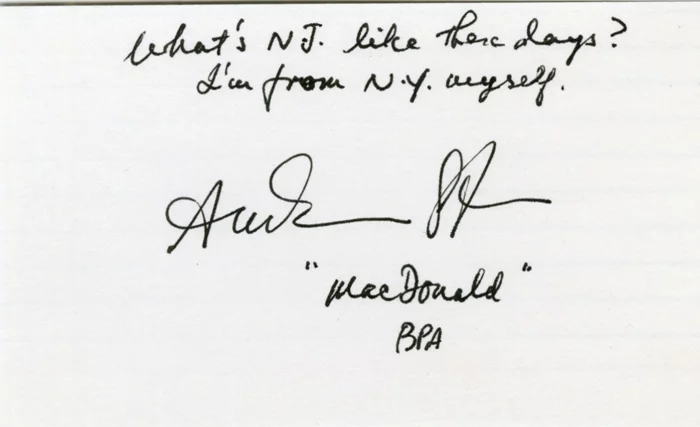 What's N.J. like these days?
I'm from N.Y. myself.
"MacDonald"
BPA